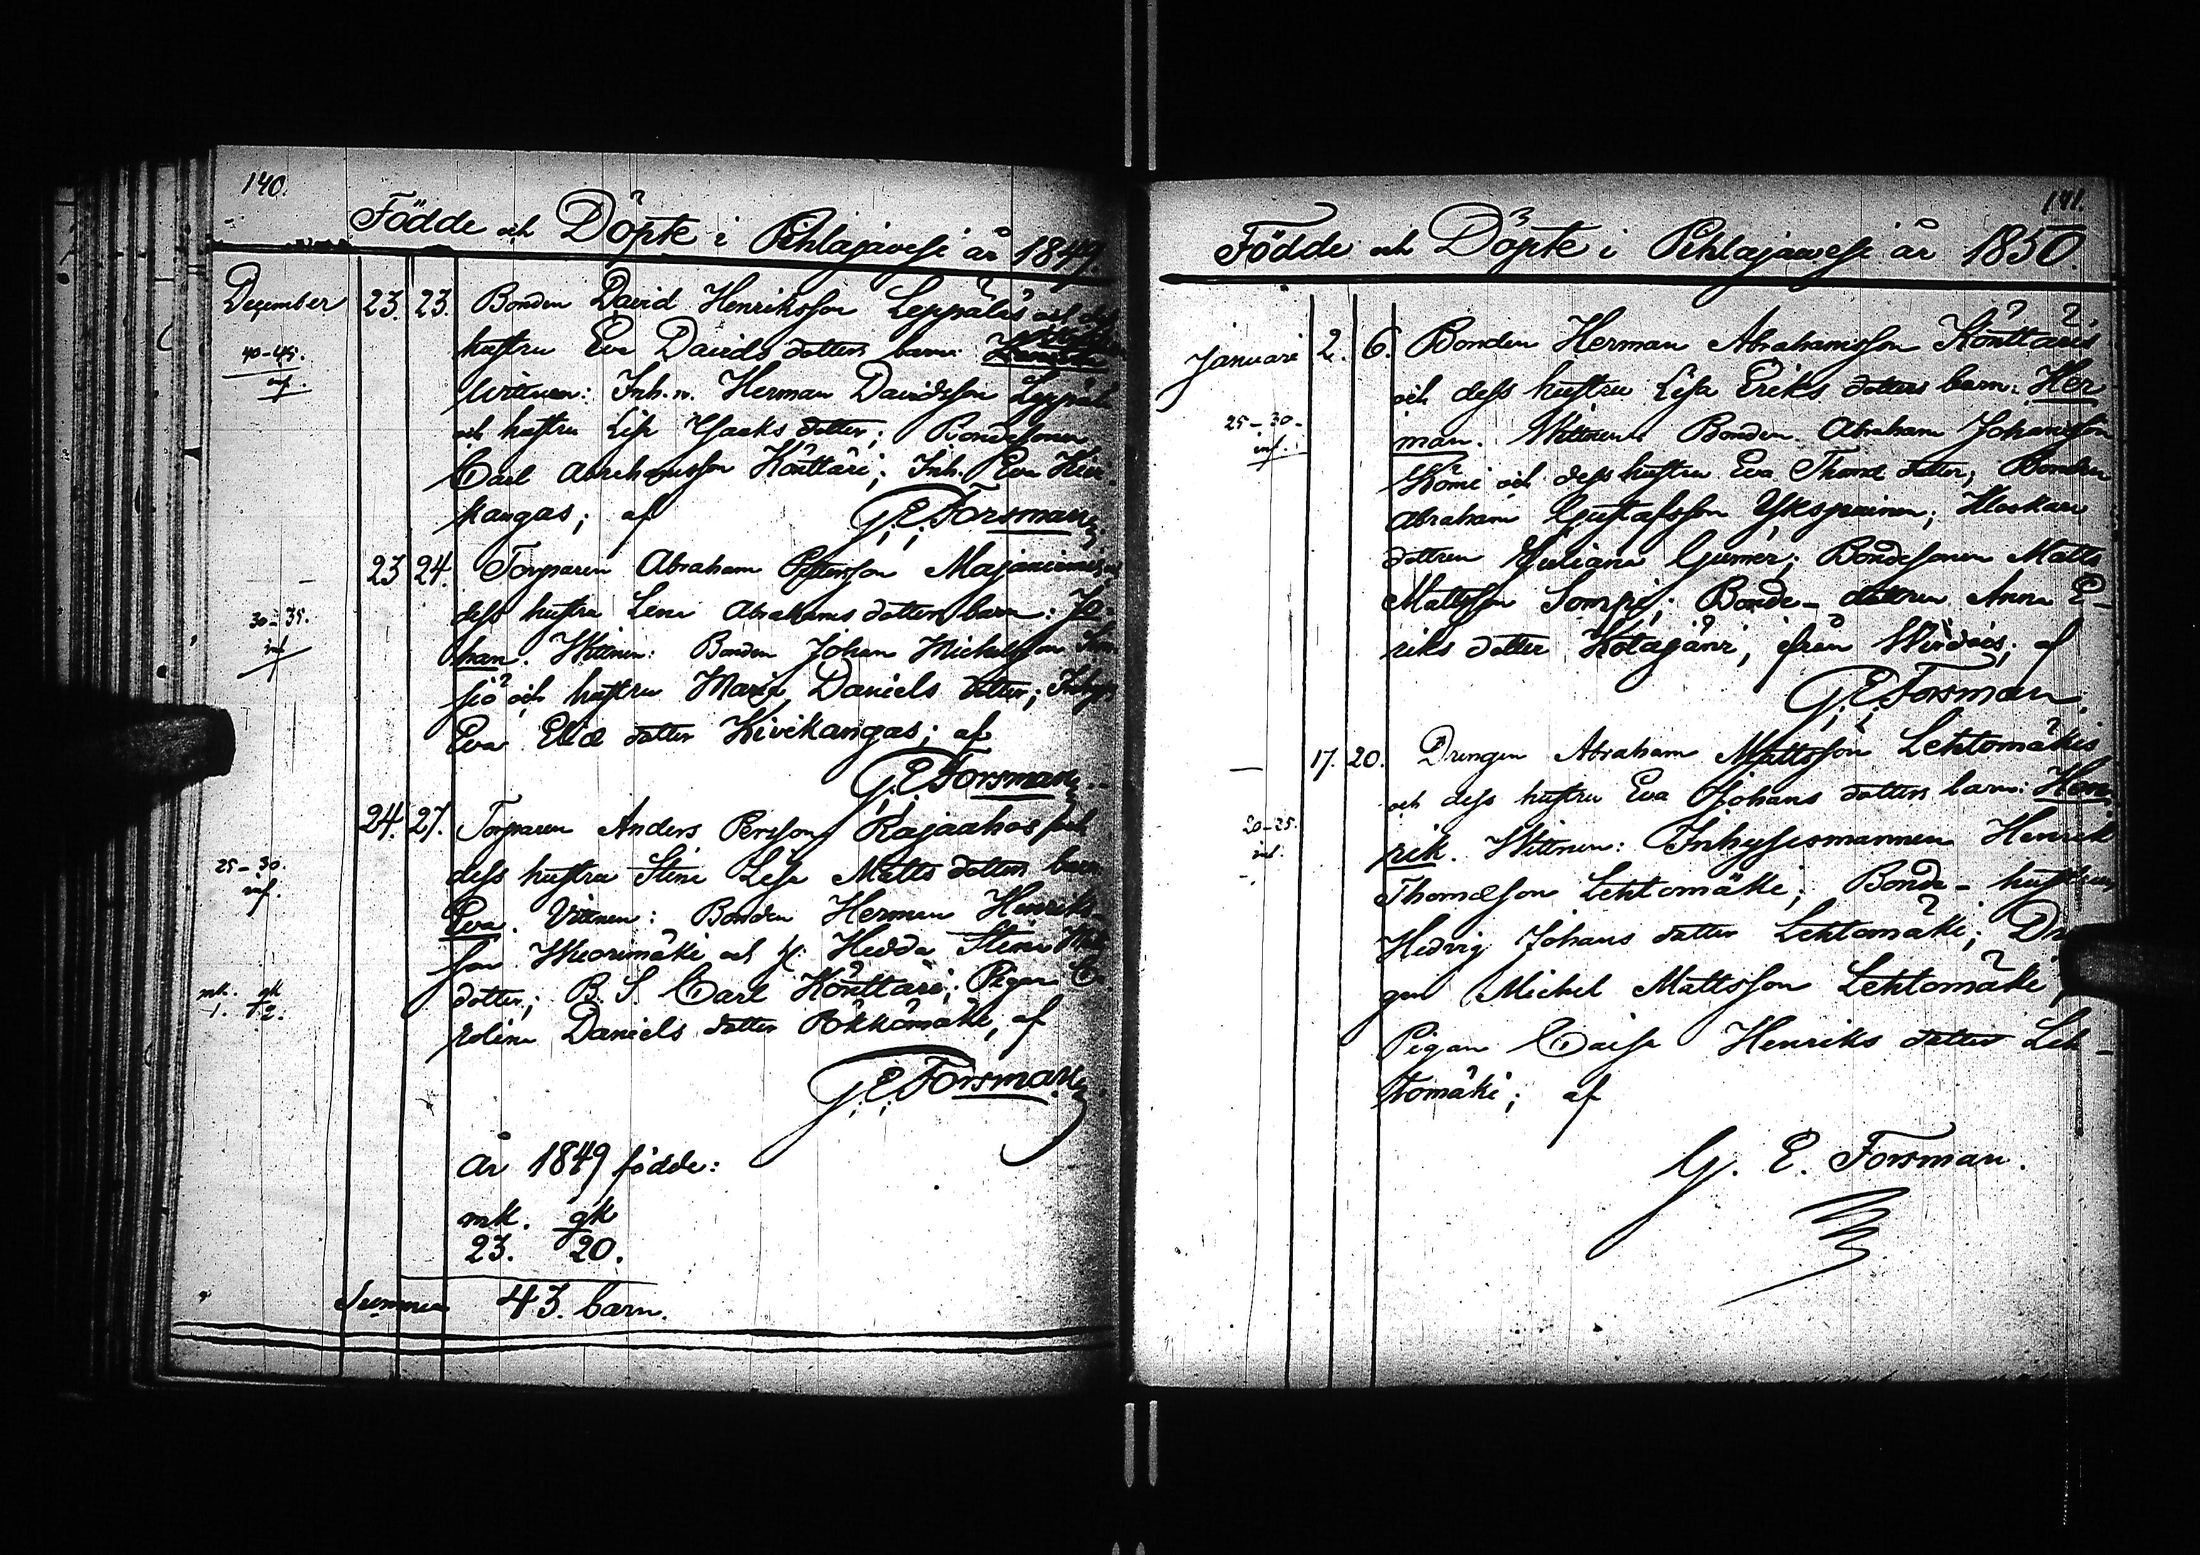 140.
Födde och Döpte i Pihlajavesi år 1849.
December 23. 23. Bonden David Henriksson Leppäläs och dess
40-45. hustru Eva Davids dotters barn:
inf. Wittnen: Inh. n. Herman Davidsson Leppälä
och hustru Lisa Isaaks dotter; Bondesonen
Carl Abrahamsson Könttäri; Inh. Eva Kivi-
kangas; af G. E. Forsman
23 24. Torparen Abraham Pettersson Majaniemis
30-35. dess hustru Lena Abrahams dotters barn: Jo-
inf. han. Wittnen: Bonden Johan Michelsson
siö och hustru Maria Daniels dotter; Inhys.
Eva Elia dotter Kivikangas; af
G. E. Forsman
24. 27. Torparen Anders Persson Rajaahos och
25-30. dess hustru Stina Lisa Matts dotters barn
inf. Eva. Vittnen: Bonden Herman Henriks-
son Wuorimäki och H. Hedda Stina
mk. qk dotter; B. S. Carl Könttäri; Pigan Ca-
1. 2. rolina Daniels dotter Pökkömäki, af
G. E. Forsman
År 1849 födde:
mk. qk
23. 20.
Summa 43. barn.
141.
Födde och Döpte i Pihlajavesi år 1850.
Januari 2. 6. Bonden Herman Abrahamsson Könttäris
och dess hustru Lisa Eriks dotters barn: Her-
25-30. man. Wittnen: Bonden Abraham Johansson
inf. Kömi och dess hustru Eva Thomæ dotter; Bonden
Abraham Gustafsson Ykspainen; Klockare
dottren Juliana Gumer; Bondesonen Matts
Mattsson Sompi; Bonde-dottren Anna E-
riks dotter Kotajärvi, från Wirdois; af
G. E. Forsman.
17. 20. Drengen Abraham Mattsson Lehtomäkis
och dess hustru Eva Johans dotters barn: Hen-
20-25. rik. Wittnen: Inhysesmannen Henrik
inf. Thomæson Lehtomäki; Bonde-hustrun
Hedvig Johans dotter Lehtomäki;
gen Michel Mattsson Lehtomäki,
Pigan Caisa Henriks dotter Leh-
tomäki; af
G. E. Forsman.